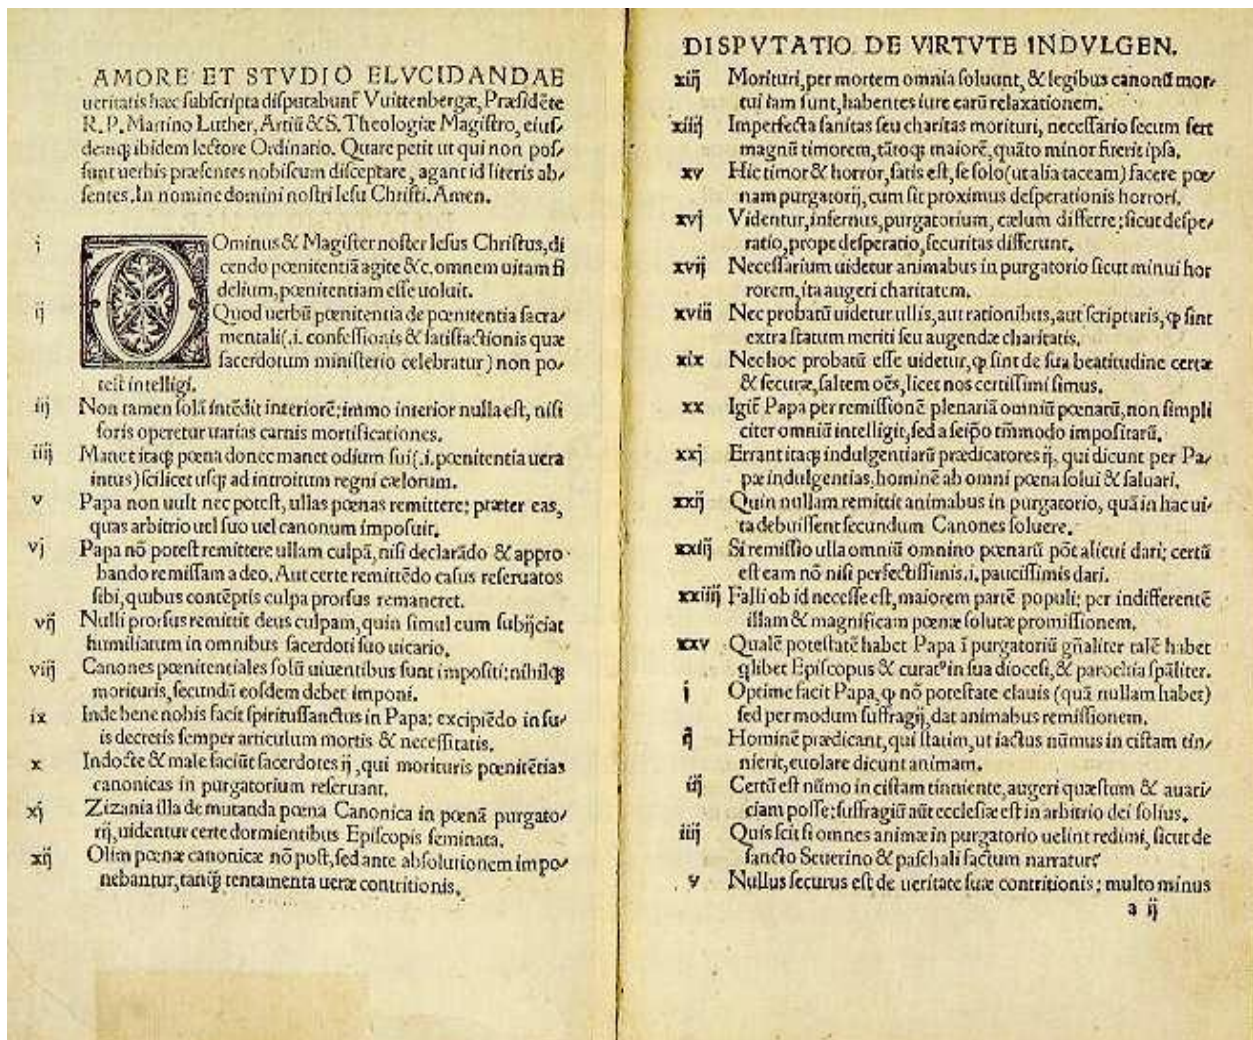 AMORE ET STVDIO ELVCIDANDAE
ueritatis hæc subscripta disputabunt̃ Vuittenbergæ, Præsidẽte
R. P. Martino Luther, Artiũ & S. Theologiæ Magistro, eius/
demq; ibidem lectore Ordinario. Quare petit ut qui non pos/
sunt uerbis præsentes nobiscum disceptare, agant id literis ab/
sentes. In nomine domini nostri Iesu Christi. Amen.
i Ominus & Magister noster Iesus Christus, di
cendo pœnitentiã agite &c. omnem uitam fi
delium, pœnitentiam esse uoluit.
ij Quod uerbũ pœnitentia de pœnitentia sacra/
mentali (.i. confessionis & satisfactionis quæ
sacerdotum ministerio celebratur) non po/
test intelligi.
iij Non tamen solã intẽdit interiorẽ; immo interior nulla est, nisi
foris operetur uarias carnis mortificationes.
iiij Manet itaq; pœna donec manet odium sui (.i. pœnitentia uera
intus) scilicet usq; ad introitum regni cælorum.
v Papa non uult nec potest, ullas pœnas remittere; præter eas,
quas arbitrio uel suo uel canonum imposuit.
vj Papa nõ potest remittere ullam culpã, nisi declarãdo & appro
bando remissam a deo. Aut certe remittẽdo casus reseruatos
sibi, quibus contẽptis culpa prorsus remaneret.
vij Nulli prorsus remittit deus culpam, quin simul eum subijciat
humiliatum in omnibus sacerdoti suo uicario.
viij Canones pœnitentiales solũ uiuentibus sunt impositi; nihilq;
morituris, secundũ eosdem debet imponi.
ix Inde bene nobis facit spiritussanctus in Papa; excipiẽdo in su/
is decretis semper articulum mortis & necessitatis.
x Indocte & male faciũt sacerdotes ij, qui morituris pœnitẽtias
canonicas in purgatorium reseruant.
xj Zizania illa de mutanda pœna Canonica in pœnã purgato/
rij, uidentur certe dormientibus Episcopis seminata.
xij Olim pœnæ canonicæ nõ post, sed ante absolutionem impo/
nebantur, tanq̃ tentamenta ueræ contritionis.
DISPVTATIO DE VIRTVTE INDVLGEN.
xiij Morituri, per mortem omnia soluunt, & legibus canonũ mor/
tui iam sunt, habentes iure earũ relaxationem.
xiiij Imperfecta sanitas seu charitas morituri, necessario secum fert
magnũ timorem, tãtoq; maiorẽ, quãto minor fuerit ipsa.
xv Hic timor & horror, satis est, se solo (ut alia taceam) facere pœ/
nam purgatorij, cum sit proximus desperationis horrori.
xvj Videntur, infernus, purgatorium, cælum differre; sicut despe/
ratio, prope desperatio, securitas differunt.
xvij Necessarium uidetur animabus in purgatorio sicut minui hor
rorem, ita augeri charitatem.
xviij Nec probatũ uidetur ullis, aut rationibus, aut scripturis, ꝙ sint
extra statum meriti seu augendæ charitatis.
xix Nec hoc probatũ esse uidetur, ꝙ sint de sua beatitudine certæ
& securæ, saltem oẽs, licet nos certissimi simus.
xx Igit̃ Papa per remissionẽ plenariã omniũ pœnarũ, non simpli
citer omniũ intelligit, sed a seip̃o tm̃modo impositarũ.
xxj Errant itaq; indulgentiarũ prædicatores ij, qui dicunt per Pa/
pæ indulgentias, hominẽ ab omni pœna solui & saluari.
xxij Quin nullam remittit animabus in purgatorio, quã in hac ui/
ta debuissent secundum Canones soluere.
xxiij Si remissio ulla omniũ omnino pœnarũ põt alicui dari; certũ
est eam nõ nisi perfectissimis .i. paucissimis dari.
xxiiij Falli ob id necesse est, maiorem partẽ populi; per indifferentẽ
illam & magnificam pœnæ solutæ promissionem.
xxv Qualẽ potestatẽ habet Papa ĩ purgatoriũ gñaliter talẽ habet
q̃libet Episcopus & curatꝰ in sua diocesi, & parochia sp̃aliter.
i Optime facit Papa, ꝙ nõ potestate clauis (quã nullam habet)
sed per modum suffragij, dat animabus remissionem.
ij Hominẽ prædicant, qui statim, ut iactus nũmus in cistam tin/
nierit, euolare dicunt animam.
iij Certũ est nũmo in cistam tinniente, augeri quæstum & auari/
ciam posse; suffragiũ aũt ecclesiæ est in arbitrio dei solius.
iiij Quis scit si omnes animæ in purgatorio uelint redimi, sicut de
sancto Seuerino & paschali factum narratur?
v Nullus securus est de ueritate suæ contritionis; multo minus
a ij